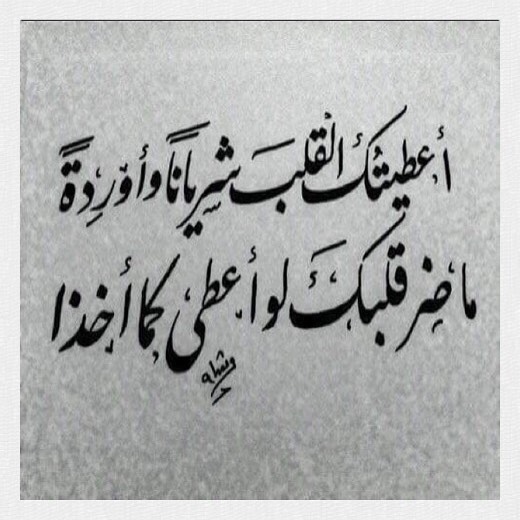 أعطيتُكَ القلبَ شِرياناً وأوْرِدةً
ما ضرَ قلبكَ لو أعطى كما أخذا